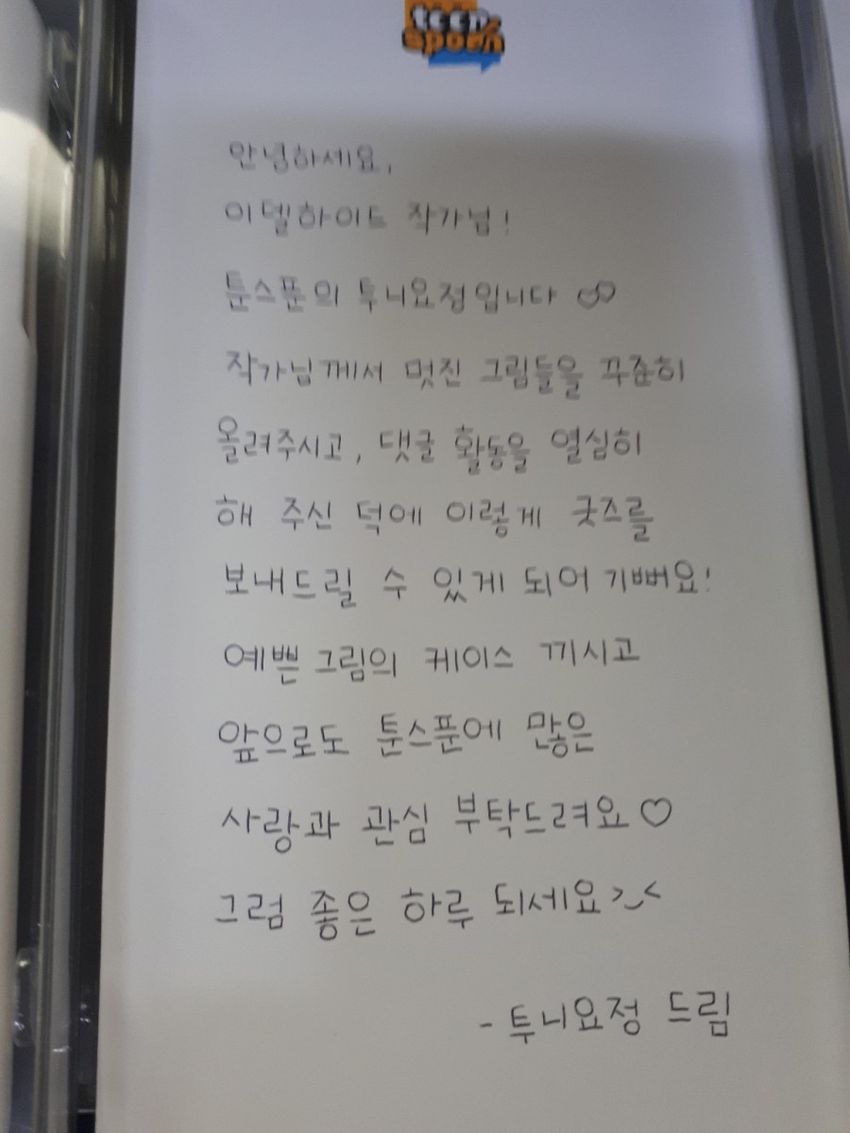 teen
spoon
안녕하세요,
이델하이드 작가님!
툰스푼의 투니요정입니다 ♡
작가님께서 멋진 그림들을 꾸준히
올려주시고, 댓글 활동을 열심히
해 주신 덕에 이렇게 굿즈를
보내드릴 수 있게 되어 기뻐요!
예쁜 그림의 케이스 끼시고
앞으로도 툰스푼에 많은
사랑과 관심 부탁드려요♡
그럼 좋은 하루 되세요>_<
- 투니요정 드림